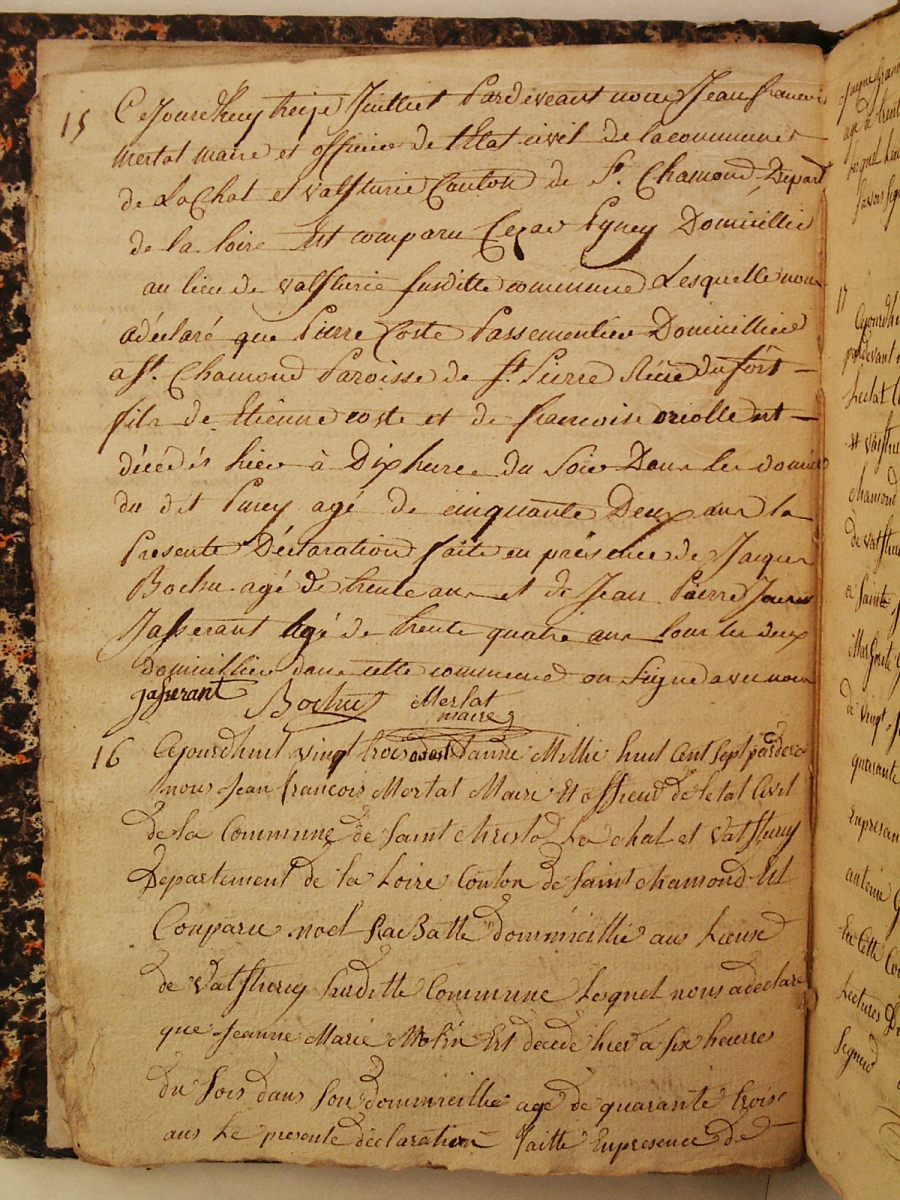 15 Cejourdhuy treize Juilliet Pardeveant nous Jean francois
Mertat maire et officier de l'Etat civil de la commune
de LaChat et valfturie Canton de St. Chamond Depart
de la loire Est comparu Cezar Domicillie
au lieu de valfturie susditte commune Lesquelle nous
adéclaré que Pierre Coste Passementier Domicillié
a St. Chamond Paroisse de St Pierre Rue du fort
fils de Etiènne coste et de francoise oriolle est
décédés hier à Dix heure du Soir Dans le domici
du dit agé de cinquante Deux ans la
Presente Déclaration faite en présence de Jacque
Bochu agé de trente ans et de Jean Pierre
Jasserant agé de trente quatre ans tous les deux
domicillier dans cette commune on Signé avec nous
jasserant Bochu Mertat
maire
16 Cejourdhuit vingt trois aoust Lanné Millie huit Cent Sept pardeva
nous Jean francois Mertat Maire Et officeur de letat Civil
de La Commune de Saint christo La chat et Valftury
Departement de La Loire Conton de Saint chamond Est
Conparu noel dommicillié aus Lieuse
de Valfturey suditte Commune Lesquel nous adeclare
que Jeanne Marie Est décédé hier a six heurres
du sois dans son dommicillié agé de quaranté trois
ans Le presente déclaration faitte Enpresence de
15
age de trent
17
Cejourdhu
pardevant n
et valftu
chamond
de valftu
a Sainte
de vingt
quarante
Enpresan
antoine
En Cette Co
Lectures
Signeed